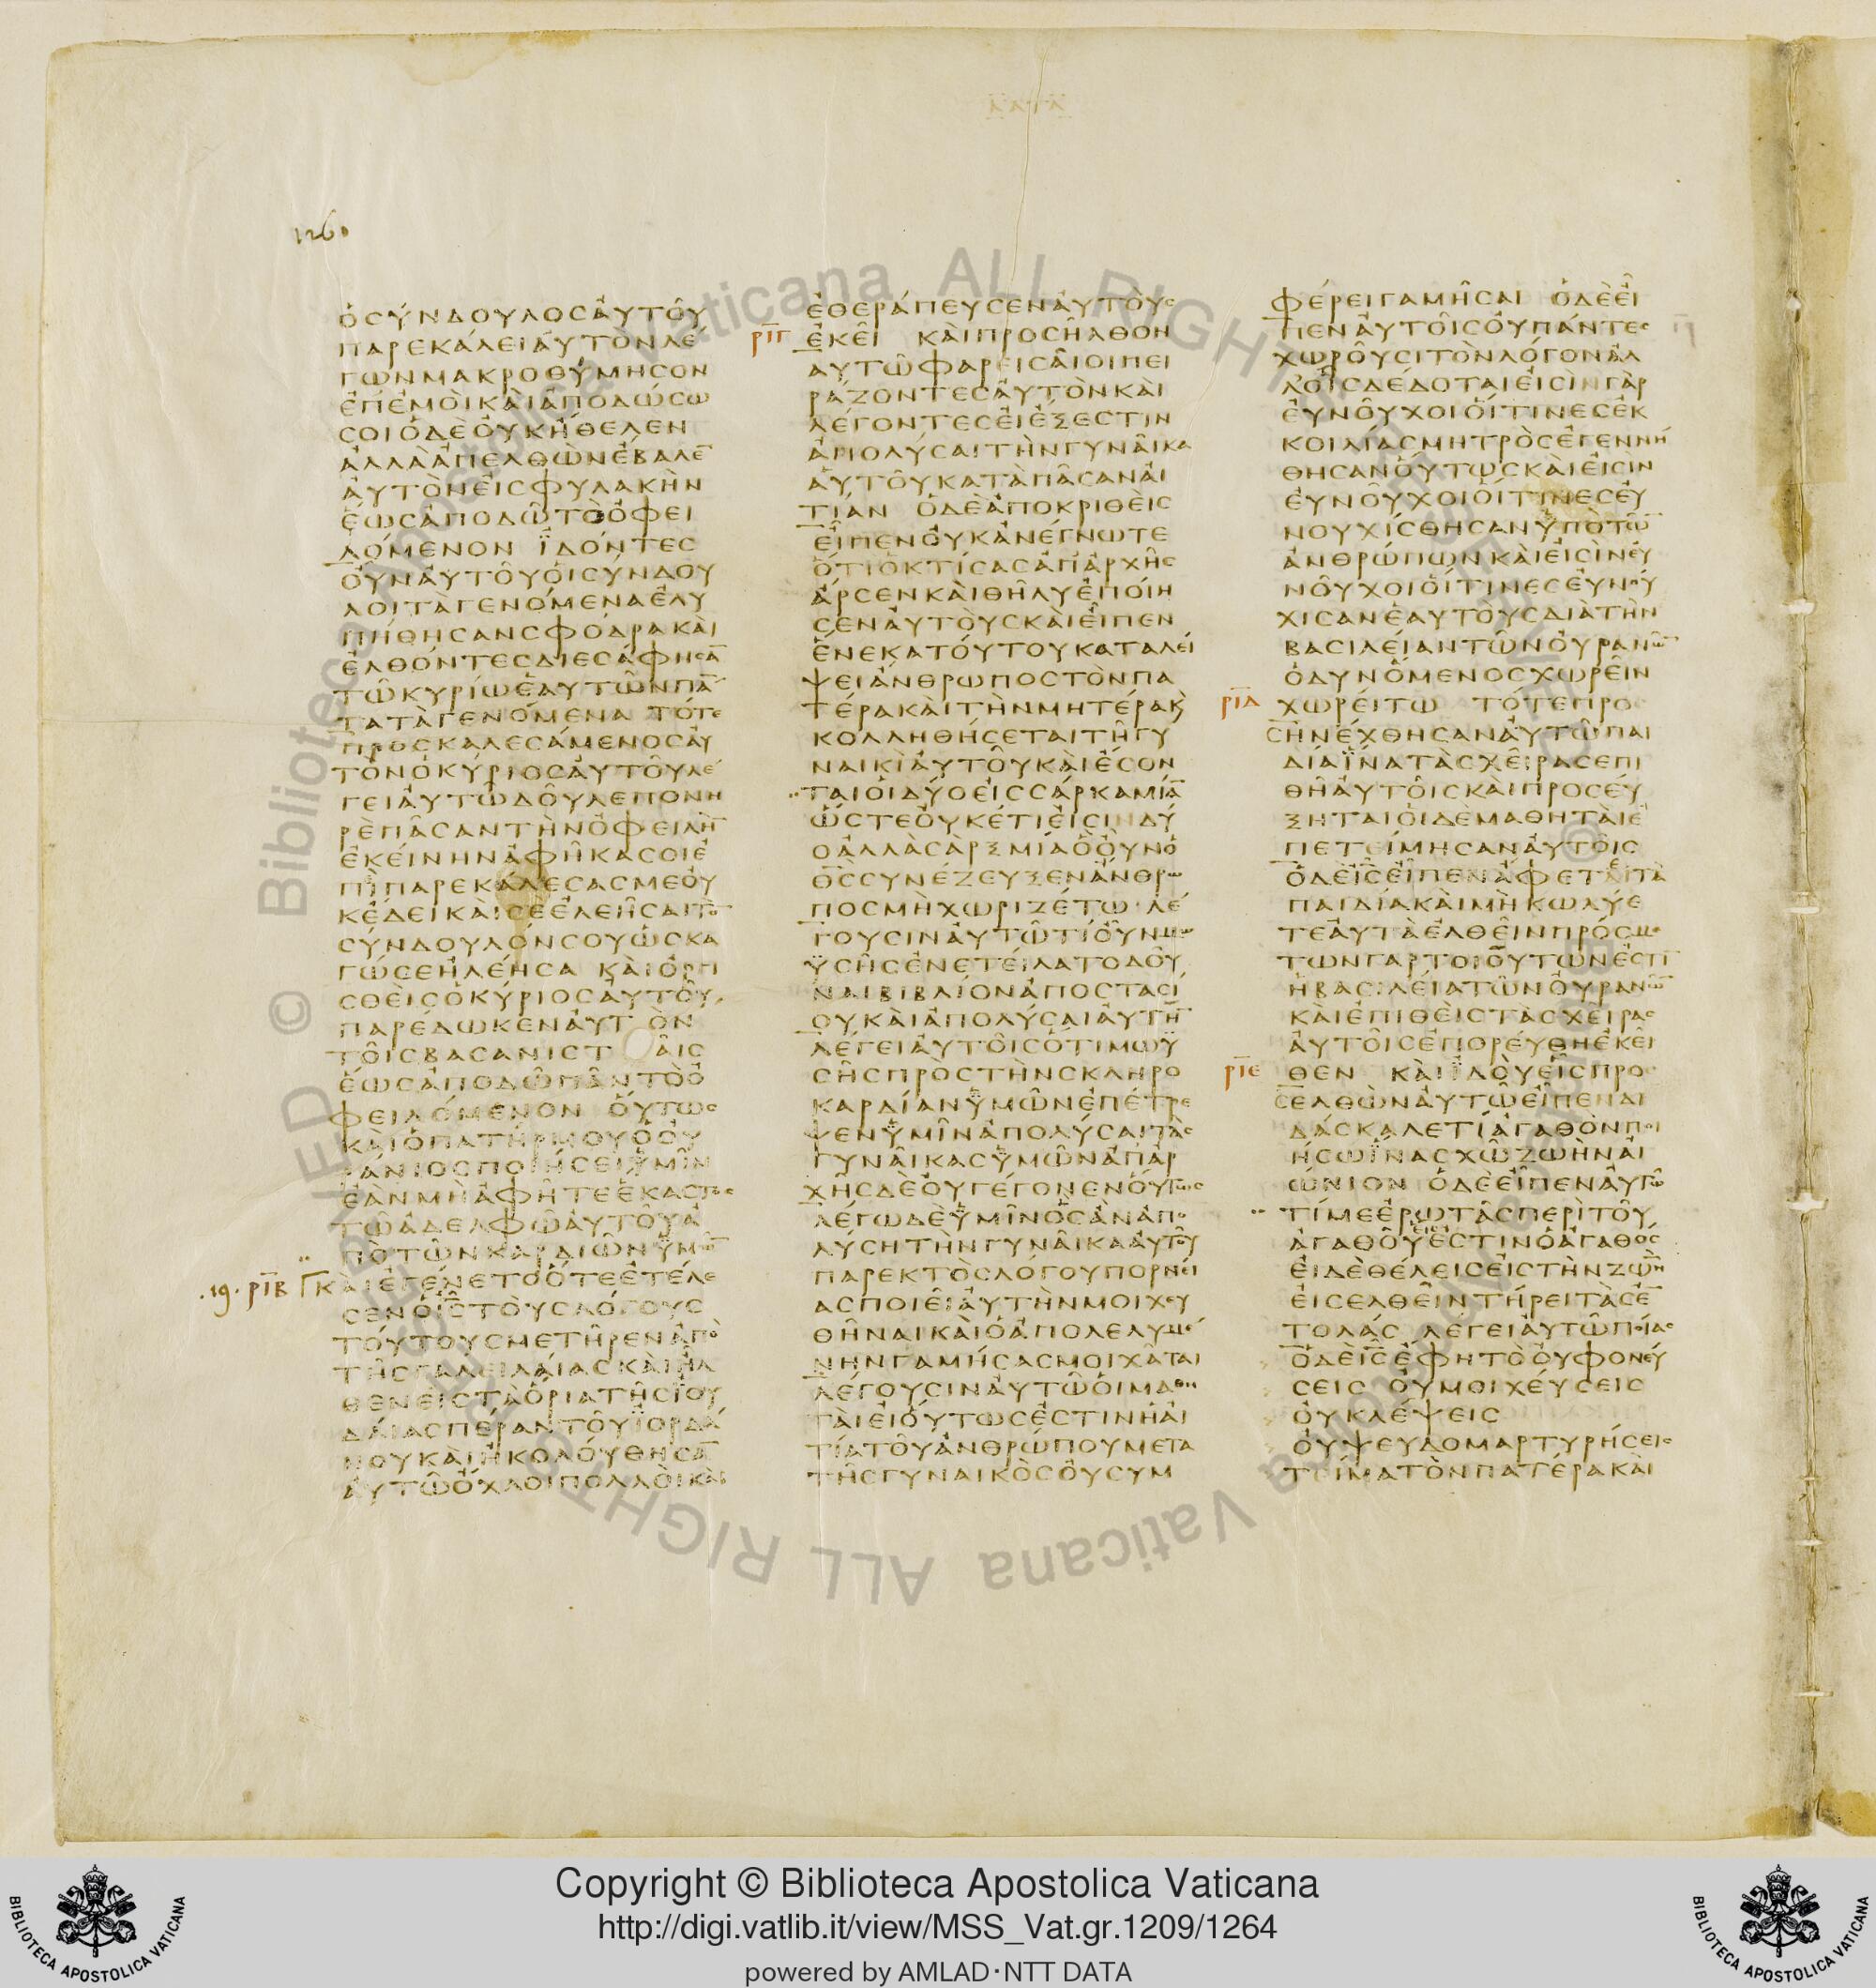 ΚΑΤΑ
1260
ΟϹΥΝΔΟΥΛΟϹΑΥΤΟΥ
ΠΑΡΕΚΑΛΕΙΑΥΤΟΝΛΕ
ΓΩΝΜΑΚΡΟΘΥΜΗϹΟΝ
ΕΠΕΜΟΙΚΑΙΑΠΟΔΩϹΩ
ϹΟΙΟΔΕΟΥΚΗΘΕΛΕΝ
ΑΛΛΑΑΠΕΛΘΩΝΕΒΑΛΕ̅
ΑΥΤΟΝΕΙϹΦΥΛΑΚΗΝ
ΕΩϹΑΠΟΔΩΤΟΟΦΕΙ
ΛΟΜΕΝΟΝ ΪΔΟΝΤΕϹ
ΟΥΝΑΥΤΟΥΟΙϹΥΝΔΟΥ
ΛΟΙΤΑΓΕΝΟΜΕΝΑΕΛΥ
ΠΗΘΗϹΑΝϹΦΟΔΡΑΚΑΙ
ΕΛΘΟΝΤΕϹΔΙΕϹΑΦΗϹΑ̅
ΤΩΚΥΡΙΩΕΑΥΤΩΝΠΑ̅
ΤΑΤΑΓΕΝΟΜΕΝΑ ΤΟΤΕ
ΠΡΟϹΚΑΛΕϹΑΜΕΝΟϹΑΥ
ΤΟΝΟΚΥΡΙΟϹΑΥΤΟΥΛΕ
ΓΕΙΑΥΤΩΔΟΥΛΕΠΟΝΗ
ΡΕΠΑϹΑΝΤΗΝΟΦΕΙΛΗ̅
ΕΚΕΙΝΗΝΑΦΗΚΑϹΟΙΕ
ΠΙΠΑΡΕΚΑΛΕϹΑϹΜΕΟΥ
ΚΕΔΕΙΚΑΙϹΕΕΛΕΗϹΑΙΤΟ̅
ϹΥΝΔΟΥΛΟΝϹΟΥΩϹΚΑ
ΓΩϹΕΗΛΕΗϹΑ ΚΑΙΟΡΓΙ
ϹΘΕΙϹΟΚΥΡΙΟϹΑΥΤΟΥ
ΠΑΡΕΔΩΚΕΝΑΥΤΟΝ
ΤΟΙϹΒΑϹΑΝΙϹΤΑΙϹ
ΕΩϹΑΠΟΔΩΠΑΝΤΟΟ
ΦΕΙΛΟΜΕΝΟΝ ΟΥΤΩϹ
ΚΑΙΟΠΑΤΗΡΜΟΥΟΟΥ
ΡΑΝΙΟϹΠΟΙΗϹΕΙΫΜΙΝ
ΕΑΝΜΗΑΦΗΤΕΕΚΑϹΤΟϹ
ΤΩΑΔΕΛΦΩΑΥΤΟΥΑ
ΠΟΤΩΝΚΑΡΔΙΩΝΫΜΩ̅
.19. ΡΙΒ ΚΑΙΕΓΕΝΕΤΟΟΤΕΕΤΕΛΕ
ϹΕΝΟΙ̅Ϲ̅ΤΟΥϹΛΟΓΟΥϹ
ΤΟΥΤΟΥϹΜΕΤΗΡΕΝΑΠΟ
ΤΗϹΓΑΛΕΙΛΑΙΑϹΚΑΙΗΛ
ΘΕΝΕΙϹΤΑΟΡΙΑΤΗϹΪΟΥ
ΔΑΙΑϹΠΕΡΑΝΤΟΥΪΟΡΔΑ
ΝΟΥΚΑΙΗΚΟΛΟΥΘΗϹΑ̅
ΑΥΤΩΟΧΛΟΙΠΟΛΛΟΙΚΑΙ
ΕΘΕΡΑΠΕΥϹΕΝΑΥΤΟΥϹ
ΡΙΓ ΕΚΕΙ ΚΑΙΠΡΟϹΗΛΘΟΝ
ΑΥΤΩΦΑΡΕΙϹΑΙΟΙΠΕΙ
ΡΑΖΟΝΤΕϹΑΥΤΟΝΚΑΙ
ΛΕΓΟΝΤΕϹΕΙΕΞΕϹΤΙΝ
ΑΠΟΛΥϹΑΙΤΗΝΓΥΝΑΙΚΑ
ΑΥΤΟΥΚΑΤΑΠΑϹΑΝΑΙ
ΤΙΑΝ ΟΔΕΑΠΟΚΡΙΘΕΙϹ
ΕΙΠΕΝΟΥΚΑΝΕΓΝΩΤΕ
ΟΤΙΟΚΤΙϹΑϹΑΠΑΡΧΗϹ
ΑΡϹΕΝΚΑΙΘΗΛΥΕΠΟΙΗ
ϹΕΝΑΥΤΟΥϹΚΑΙΕΙΠΕΝ
ΕΝΕΚΑΤΟΥΤΟΥΚΑΤΑΛΕΙ
ΨΕΙΑΝΘΡΩΠΟϹΤΟΝΠΑ
ΤΕΡΑΚΑΙΤΗΝΜΗΤΕΡΑΚϗ
ΚΟΛΛΗΘΗϹΕΤΑΙΤΗΓΥ
ΝΑΙΚΙΑΥΤΟΥΚΑΙΕϹΟΝ
ΤΑΙΟΙΔΥΟΕΙϹϹΑΡΚΑΜΙΑ̅
ΩϹΤΕΟΥΚΕΤΙΕΙϹΙΝΔΥ
ΟΑΛΛΑϹΑΡΞΜΙΑΟΟΥΝΟ
ΘϹϹΥΝΕΖΕΥΞΕΝΑΝΘΡΩ
ΠΟϹΜΗΧΩΡΙΖΕΤΩ ΛΕ
ΓΟΥϹΙΝΑΥΤΩΤΙΟΥΝΜΩ
ΫϹΗϹΕΝΕΤΕΙΛΑΤΟΔΟΥ
ΝΑΙΒΙΒΛΙΟΝΑΠΟϹΤΑϹΙ
ΟΥΚΑΙΑΠΟΛΥϹΑΙΑΥΤΗ̅
ΛΕΓΕΙΑΥΤΟΙϹΟΤΙΜΩΫ
ϹΗϹΠΡΟϹΤΗΝϹΚΛΗΡΟ
ΚΑΡΔΙΑΝΫΜΩΝΕΠΕΤΡΕ
ΨΕΝΫΜΙΝΑΠΟΛΥϹΑΙΤΑϹ
ΓΥΝΑΙΚΑϹΫΜΩΝΑΠΑΡ
ΧΗϹΔΕΟΥΓΕΓΟΝΕΝΟΥΤΩϹ
ΛΕΓΩΔΕΫΜΙΝΟϹΑΝΑΠΟ
ΛΥϹΗΤΗΝΓΥΝΑΙΚΑΑΥΤΟΥ
ΠΑΡΕΚΤΟϹΛΟΓΟΥΠΟΡΝΕΙ
ΑϹΠΟΙΕΙΑΥΤΗΝΜΟΙΧΕΥ
ΘΗΝΑΙΚΑΙΟΑΠΟΛΕΛΥΜΕ
ΝΗΝΓΑΜΗϹΑϹΜΟΙΧΑΤΑΙ
ΛΕΓΟΥϹΙΝΑΥΤΩΟΙΜΑΘΗ
ΤΑΙΕΙΟΥΤΩϹΕϹΤΙΝΗΑΙ
ΤΙΑΤΟΥΑΝΘΡΩΠΟΥΜΕΤΑ
ΤΗϹΓΥΝΑΙΚΟϹΟΥϹΥΜ
ΦΕΡΕΙΓΑΜΗϹΑΙ ΟΔΕΕΙ
ΠΕΝΑΥΤΟΙϹΟΥΠΑΝΤΕϹ
ΧΩΡΟΥϹΙΤΟΝΛΟΓΟΝΑΛ
ΛΟΙϹΔΕΔΟΤΑΙΕΙϹΙΝΓΑΡ
ΕΥΝΟΥΧΟΙΟΙΤΙΝΕϹΕΚ
ΚΟΙΛΙΑϹΜΗΤΡΟϹΕΓΕΝΝΗ
ΘΗϹΑΝΟΥΤΩϹΚΑΙΕΙϹΙΝ
ΕΥΝΟΥΧΟΙΟΙΤΙΝΕϹΕΥ
ΝΟΥΧΙϹΘΗϹΑΝΫΠΟΤΩ̅
ΑΝΘΡΩΠΩΝΚΑΙΕΙϹΙΝΕΥ
ΝΟΥΧΟΙΟΙΤΙΝΕϹΕΥΝΟΥ
ΧΙϹΑΝΕΑΥΤΟΥϹΔΙΑΤΗΝ
ΒΑϹΙΛΕΙΑΝΤΩΝΟΥΡΑΝΩ̅
ΟΔΥΝΟΜΕΝΟϹΧΩΡΕΙΝ
ΡΙΔ ΧΩΡΕΙΤΩ ΤΟΤΕΠΡΟ
ϹΗΝΕΧΘΗϹΑΝΑΥΤΩΠΑΙ
ΔΙΑΪΝΑΤΑϹΧΕΙΡΑϹΕΠΙ
ΘΗΑΥΤΟΙϹΚΑΙΠΡΟϹΕΥ
ΞΗΤΑΙΟΙΔΕΜΑΘΗΤΑΙΕ
ΠΕΤΕΙΜΗϹΑΝΑΥΤΟΙϹ
ΟΔΕΙ̅Ϲ̅ΕΙΠΕΝΑΦΕΤΕΤΑ
ΠΑΙΔΙΑΚΑΙΜΗΚΩΛΥΕ
ΤΕΑΥΤΑΕΛΘΕΙΝΠΡΟϹΜΕ
ΤΩΝΓΑΡΤΟΙΟΥΤΩΝΕϹΤΙ̅
ΗΒΑϹΙΛΕΙΑΤΩΝΟΥΡΑΝΩ̅
ΚΑΙΕΠΙΘΕΙϹΤΑϹΧΕΙΡΑϹ
ΑΥΤΟΙϹΕΠΟΡΕΥΘΗΕΚΕΙ
ΡΙΕ ΘΕΝ ΚΑΙΪΔΟΥΕΙϹΠΡΟ
ϹΕΛΘΩΝΑΥΤΩΕΙΠΕΝΔΙ
ΔΑϹΚΑΛΕΤΙΑΓΑΘΟΝΠΟΙ
ΗϹΩΪΝΑϹΧΩΖΩΗΝΑΙ
ΩΝΙΟΝ ΟΔΕΕΙΠΕΝΑΥΤΩ
ΤΙΜΕΕΡΩΤΑϹΠΕΡΙΤΟΥ
ΑΓΑΘΟΥΕΙϹΕϹΤΙΝΟΑΓΑΘΟϹ
ΕΙΔΕΘΕΛΕΙϹΕΙϹΤΗΝΖΩΗ̅
ΕΙϹΕΛΘΕΙΝΤΗΡΕΙΤΑϹΕ̅
ΤΟΛΑϹ ΛΕΓΕΙΑΥΤΩΠΟΙΑϹ
ΟΔΕΙ̅Ϲ̅ΕΦΗΤΟΟΥΦΟΝΕΥ
ϹΕΙϹ ΟΥΜΟΙΧΕΥϹΕΙϹ
ΟΥΚΛΕΨΕΙϹ
ΟΥΨΕΥΔΟΜΑΡΤΥΡΗϹΕΙϹ
ΤΕΙΜΑΤΟΝΠΑΤΕΡΑΚΑΙ
© Biblioteca Apostolica Vaticana ALL RIGHTS RESERVED
Copyright © Biblioteca Apostolica Vaticana
http://digi.vatlib.it/view/MSS_Vat.gr.1209/1264
powered by AMLAD·NTT DATA
BIBLIOTECA APOSTOLICA VATICANA
BIBLIOTECA APOSTOLICA VATICANA